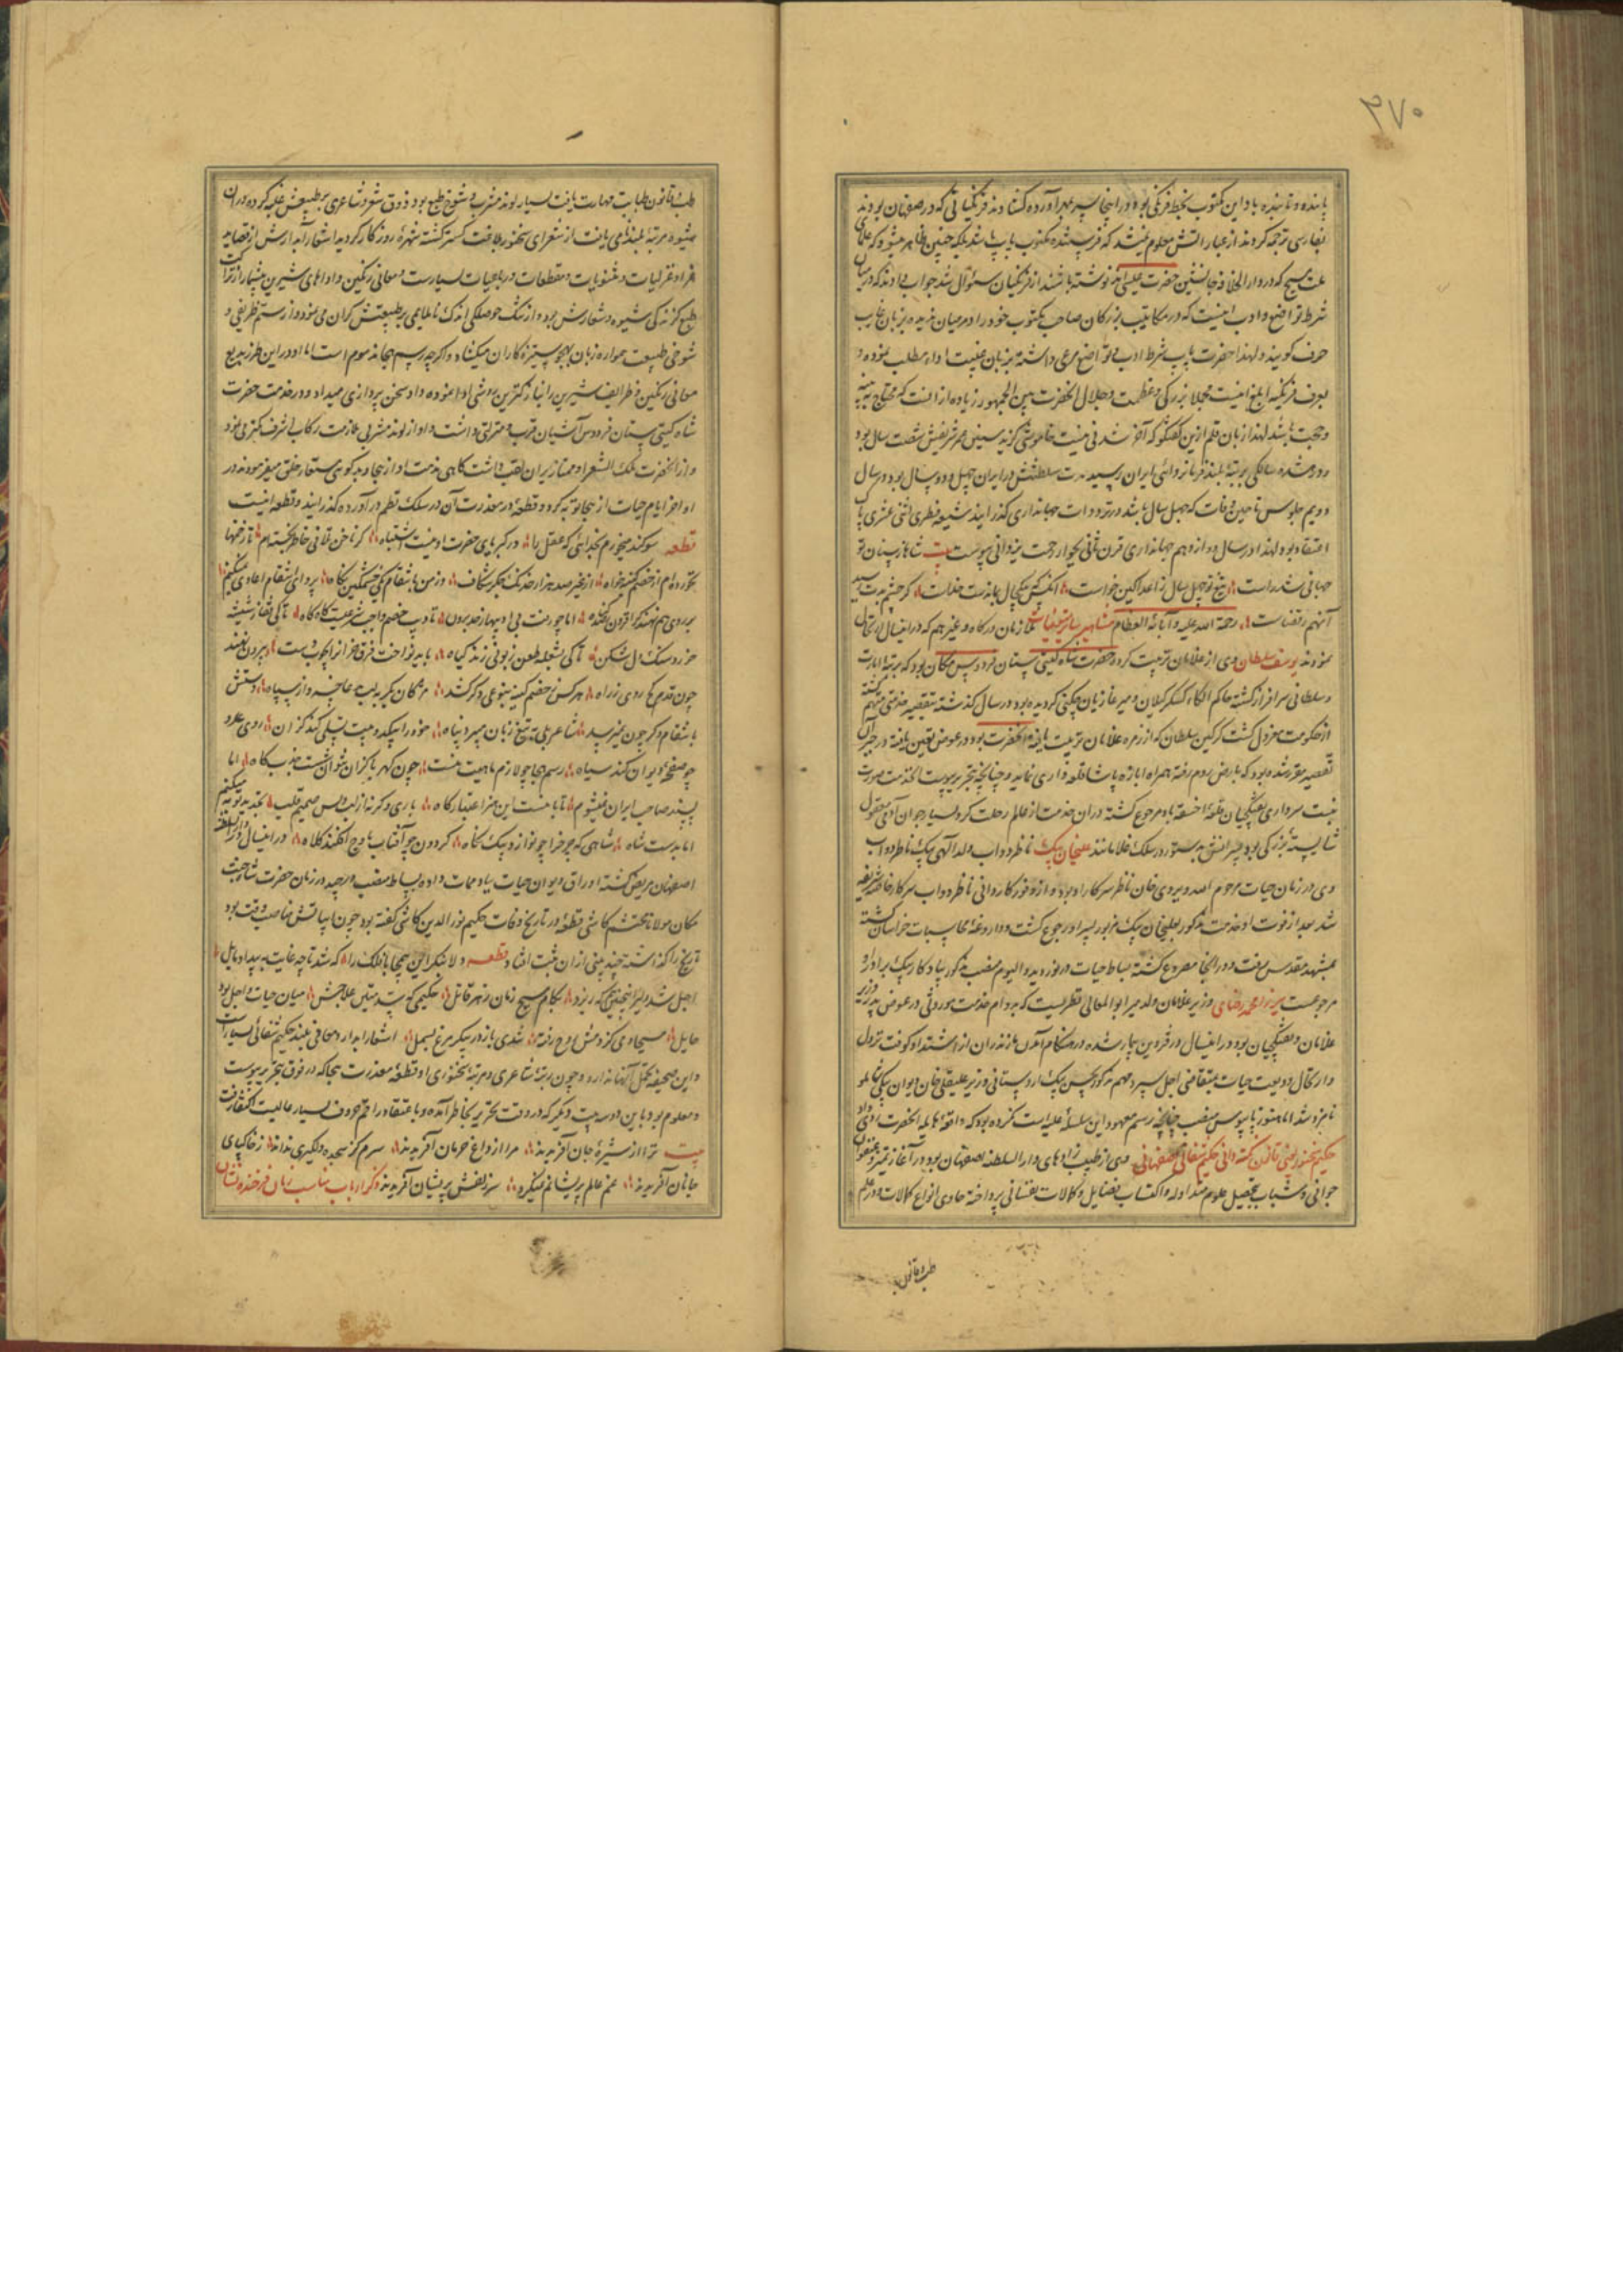 ۳۷۰
پاینده و تابنده باد این مکتوب بخط فرنگی بود و در اینجا سر بمهر آورده کشادند فرنگیانی که در صفاهان بودند
بفارسی ترجمه کردند از عباراتش معلوم میشد که فرستنده مکتوب پاپ باشد بلکه چنین ظاهر میشود که علمای
ملت مسیح که در دار الخلافه جانشین حضرت عیسی اند نوشته باشند از فرنگیان سئوال شد جواب دادند که در میان
شرط تواضع و ادب اینست که در مکاتیب بزرگان صاحب مکتوب خود را در میان ندیده بزبان غایب
حرف گویند و لهذا حضرت پاپ شرط ادب و تواضع مرعی داشته بزبان غیبت اداء مطلب نموده و
بعرف فرنگیه ابلغ اینست مجملا بزرگی و عظمت و جلال آنحضرت بین الجمهور زیاده از آنست که محتاج به بینه
و حجت باشد لهذا زبان قلم ازین گفتگو که آخر شدنی نیست خاموشی گزید سنین عمر شریفش شصت سال بود
در هشده سالگی بمرتبه بلند فرمانروائی ایران رسید مدت سلطنتش در ایران چهل و دو سال بود و در سال
دویم جلوس تا حین وفات که چهل سال باشد در ترددات جهانداری گذرانید شیعه فطری اثنی عشری پاک
اعتقاد بود لهذا در سال دوازدهم جهانداری قرن ثانی بجوار رحمت یزدانی پیوست بیت شاها ز سنان تو
جهانی شد راست تیغ تو چهل سال ز اعدا کین خواست
آنهم ز قضاست رحمة الله علیه و آبائه العظام ملازمان درگاه و غیر هم که در اینسال ارتحال
نمودند یوسف سلطان وی از غلامان تربیت کرده حضرت شاه گیتی ستان فردوس مکان بود که برتبه امارت
و سلطانی سرافراز گشته حاکم الکاء گسکر گیلان و میر غازیان چگنی گردیده بود در سال گذشته بتقصیر خدمتی متهم گشته
از حکومت معزول گشت گرگین سلطان که از زمره غلامان تربیت یافته آنحضرت بود در عوض تعین یافته در جبر آن
تقصیر مقرر شده بود که بارض روم رفته همراه ابازه پاشا قلعه داری نماید و چنانچه بتحریر پیوست آنخدمت صورت
نبست سرداری تفنگچیان قلعه اخسقه باو مرجوع گشته در آن خدمت از عالم رحلت کرد بسیار جوان آدمی معقول
شایسته بزرگی بود در سلک غلامانند علیخان بیک ناظر دواب ولد الهی بیک ناظر دواب
وی در زمان حیات مرحوم الله ویردی خان ناظر سرکار او بود و از وفور کاردانی ناظر دواب سرکار خاصه شریفه
شد بعد از فوت او خدمت مذکور بعلیخان بیک مزبور پسر او رجوع گشت و داروغه محاسبات خراسان گشته
بمشهد مقدس میرفت و در آنجا مصروع گشته بساط حیات در نوردید و الیوم منصب مذکور بیادگار بیک برادر او
مرجوعست میرزا محمد رضای وزیر غلامان ولد میر ابو المعالی نطنزیست که بدوام خدمت موروثی در عوض پدر وزیر
غلامان و تفنگچیان بود در اینسال در قزوین بیمار شده در هنگام آمدن مازندران از اشتداد کوفت نزول
دار کتال ودیعت حیات بمتقاضی اجل سپرد
نامزد شد اما هنوز بپابوس منصب چنانچه رسم معهود این سلسله علیه است نکرده بود که واقعه هایله آنحضرت روی داد
حکیم سخنور نبض قانون نکته دانی حکیم شفائی اصفهانی وی از طبیب زادهای دار السلطنه اصفهان بود در آغاز تمیز و عنفوان
جوانی و شباب بتحصیل علوم متداوله و اکتساب فضایل و کمالات نفسانی پرداخته حاوی انواع کمالات و در علم
طب و قانون
طب و قانون طبابت مهارت یافت بسیار لوند مشرب و شوخ طبع بود ذوق شعر و شاعری بر طبیعتش غلبه کرده در آن
شیوه مرتبه بلند نامی یافت از شعرای سخنور بلاغت گستر گشته شهره روزگار گردید اشعار آبدارش از قصاید
غرا و غزلیات و مثنویات و مقطعات و رباعیات بسیارست و معانی رنگین و اداهای شیرین بیشمار از نزاکت
طبع گزنده گی شیوه و شعارش بود و از تنگ حوصلگی اندک ناملایمی بر طبیعتش گران می نمود و از ستم ظریفی و
شوخی طبیعت همواره زبان بهجو ستیزه کاران میکشاد و اگرچه رسم هجا مذموم است اما او در این طرز بدیع
معانی رنگین و ظرایف شیرین را بنازکترین روشی ادا نموده داد سخن پردازی میداد و در خدمت حضرت
شاه گیتی ستان فردوس آشیان قرب و منزلتی داشت و او از لوند مشربی بملازمت رکاب اشرف کمتر می نمود
و از آنحضرت ملک الشعرا و ممتاز ایران لقب داشت گاهی مذمت او از هجا و بدگوئی مستعار خلق میفرمودند در
اواخر ایام حیات از هجا توبه کرد و قطعه در معذرت آن در سلک نظم در آورده گذرانید و قطعه اینست
قطعه سوگند میخورم بخدائی که عقل را در کبریای حضرت او نیست اشتباه کز ناخن تلافی خاطر نخسته ام تا زخمها
نخورده ام از خصم کینه خواه از غیر صد هزار خدنگ جگر شکاف وز من بانتقام یکی خشمگین نگاه پروای انتقام اعادی نمیکنم
بر روی هم نهند گر افزون گناه اما چو رفت بی ادبیها ز حد برون تادیب خصم واجب شرعیست گاه گاه تا کی تغافل شیشه
خورد سنگ دل شکن تا کی بشعله طعن زبونی زند گیاه باید نواخت فرق خرانرا بچوب دست بیرون نهند
چون قدم کج روی ز راه هر کس ز خصم کینه بنوعی دگر کشد
بانتقام دگر چون نمیرسد شاعر بلی به تیغ زبان میبرد پناه
چو صفحه دیوان کند سیاه رسم هجا چو لازم ماهیت منست چون کهربا گران نتوان شست جذب کاه اما
پسند صاحب ایران نمیشوم تا با منست این هنر اعتبار کاه باری دگر نه از لب پس از صمیم قلب تجدید توبه میکنم
اما بدست شاه شاهی که چرخ را چو نوازد بیک نگاه گردون چو آفتاب باوج افکند کلاه در اینسال در دار السلطنه
اصفهان مریض گشته اوراق دیوان حیات بباد ممات داده بساط منصب در چید در زمان حضرت شاه جنت
مکان مولانا محتشم کاشی قطعه در تاریخ وفات حکیم نور الدین کاشی گفته بود چون ابیاتش مناسب وقت بود
تاریخ را گذاشته چند بیتی از آن ثبت افتاد قطعه دلا بنگر این بیمحابا فلک را که شد تا چه غایت به بیداد مایل
اجل شد دلیر اینچنین که ریزد بکام مسیح زمان زهر قاتل حکیمی که بستد متین علاجش میان حیات و اجل بود
حایل مسیحا دمی کز دمش روح رفته شدی باز در پیکر مرغ بسمل اشعار آبدار و معانی بلند حکیم شفائی بسیارست
و این صحیفه تحمل آنها ندارد و چون رتبه شاعری و مرتبه سخنوری او قطعه معذرت هجا که در فوق بتحریر پیوست
و معلوم بود باین دو سه بیت دیگر که در وقت تحریر بخاطر آمده و باعتقاد راقم حروف بسیار عالیست اکتفا رفت
بیت ترا از شیره جان آفریدند مرا از داغ حرمان آفریدند سرم کز سجده دیگری نداند ز خاکپای
جانان آفریدند غم عالم پریشانم نمیکرد سر زلفش پریشان آفریدند ذکر ارباب مناصب زمان فرخنده نشان